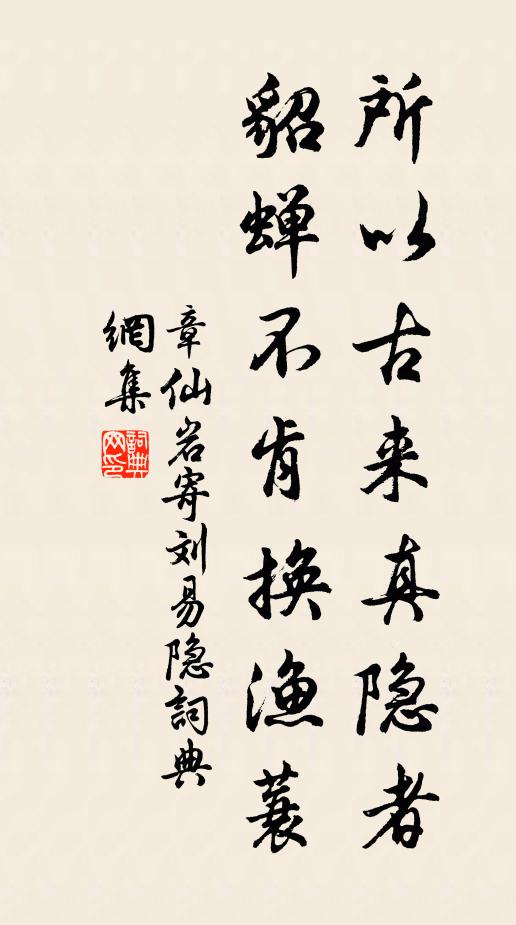 所以古来真隐者
貂蝉不肯换渔蓑
章仙岩寄刘易隐詞典
網集
詞典網印